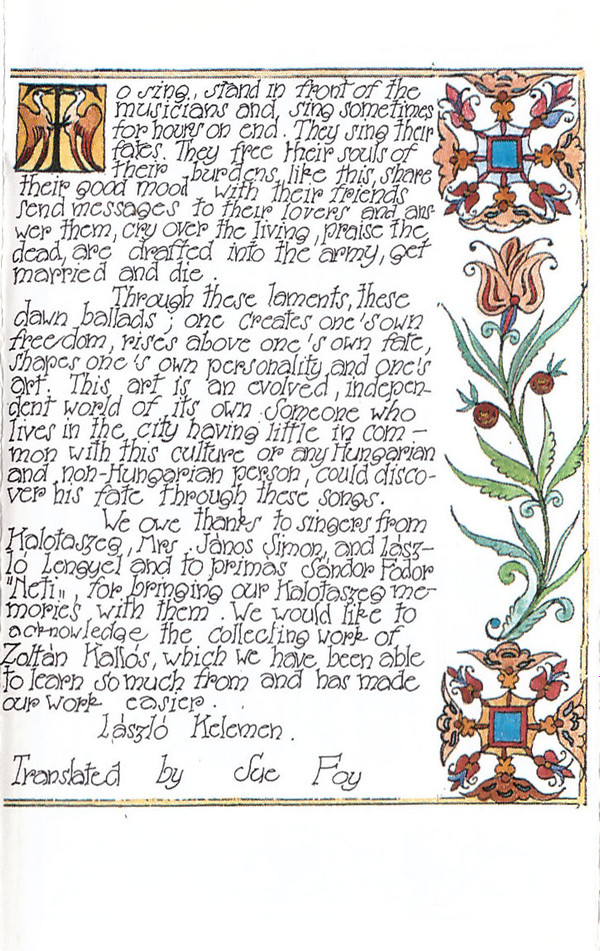 To sing, stand in front of the
musicians and, sing sometimes
for hours on end. They sing their
fates. They free their souls of
their burdens, like this, share
their good mood with their friends
send messages to their lovers and ans-
wer them, cry over the living, praise the
dead, are drafted into the army, get
married and die.
Through these laments, these
dawn ballads; one creates one's own
freedom, rises above one's own fate,
shapes one's own personality and one's
art. This art is an evolved, indepen-
dent world of its own. Someone who
lives in the city having little in com-
mon with this culture or any Hungarian
and non-Hungarian person, could disco-
ver his fate through these songs.
We owe thanks to singers from
Kalotaszeg, Mrs. János Simon, and Lász-
ló Lengyel and to primas Sándor Fodor
"Neti", for bringing our Kalotaszeg me-
mories with them. We would like to
acknowledge the collecting work of
Zoltán Kallós, which we have been able
to learn so much from and has made
our work easier.
László Kelemen.
Translated by Sue Foy